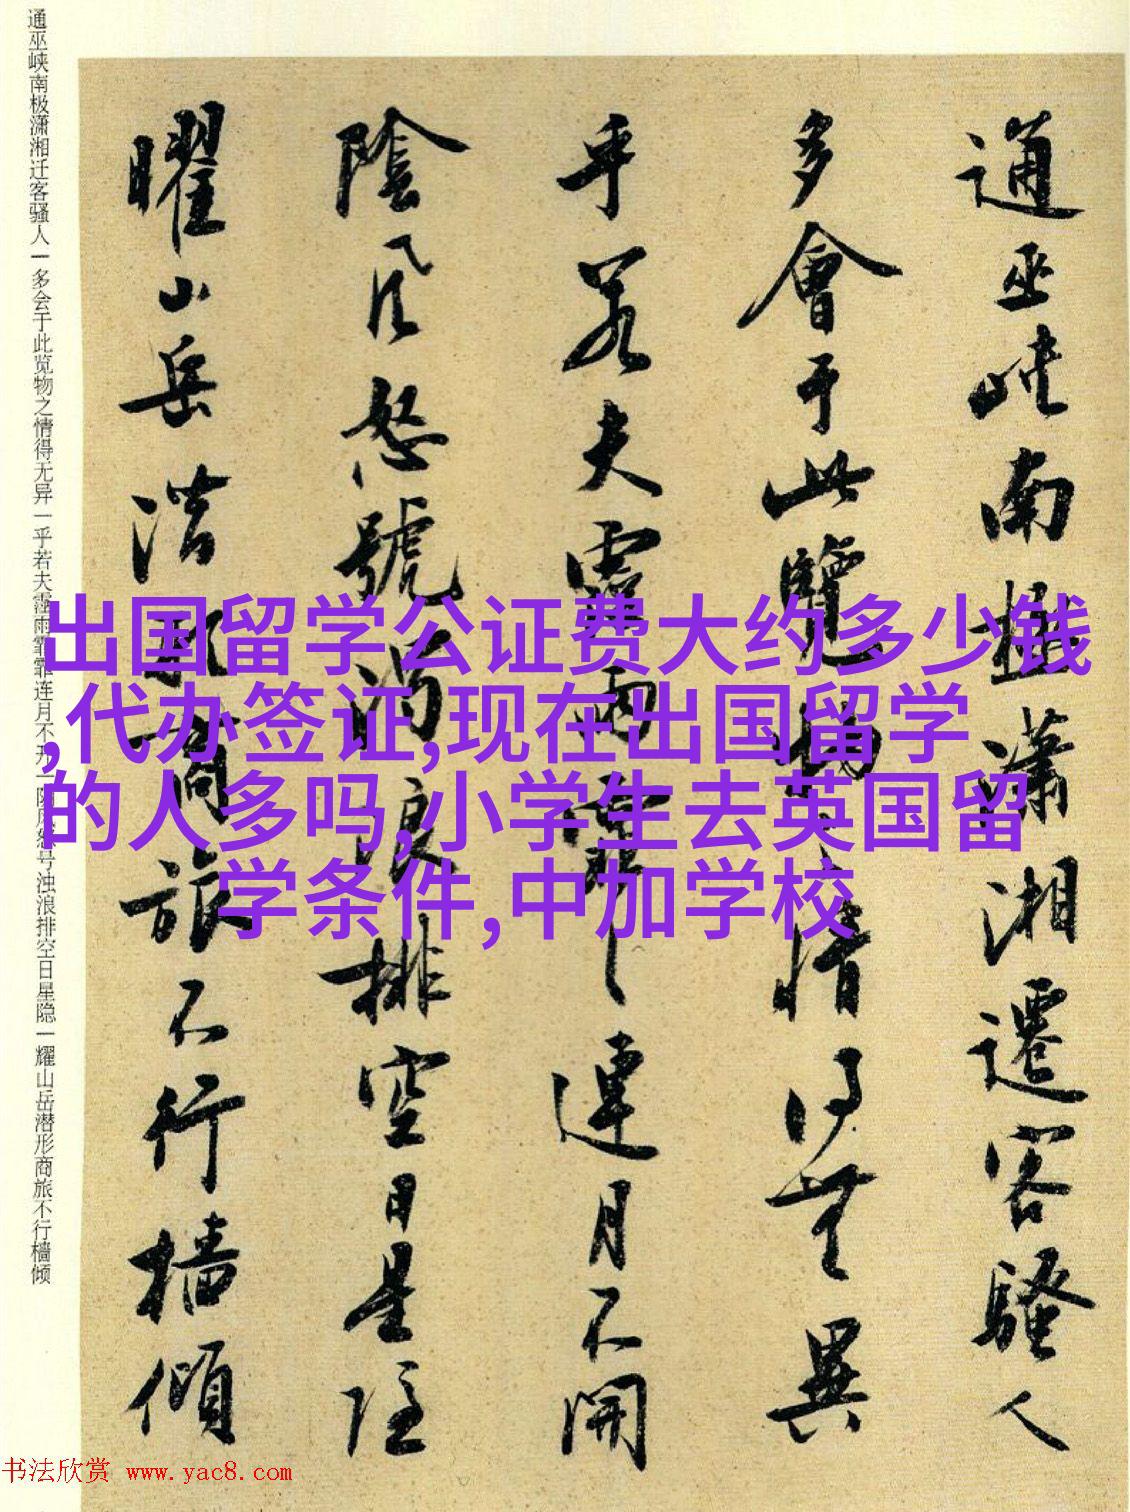 通巫峡南极潇湘迁客骚人一多会于此览物之情得无异一乎若夫霪雨霏霏连月不开一阴风怒号浊浪排空日星隐一耀山岳潜形商旅不行樯倾
通巫峽南極瀟湘遷客騷人
多會于此覽物之情得無異
乎若夫霪雨霏霏連月不開
陰風怒號濁浪排空日星隱
曜山岳潛形商旅不行檣傾
出国留学公证费大约多少钱
,代办签证,现在出国留学
的人多吗,小学生去英国留
学条件,中加学校
书法欣赏 www.yac8.com